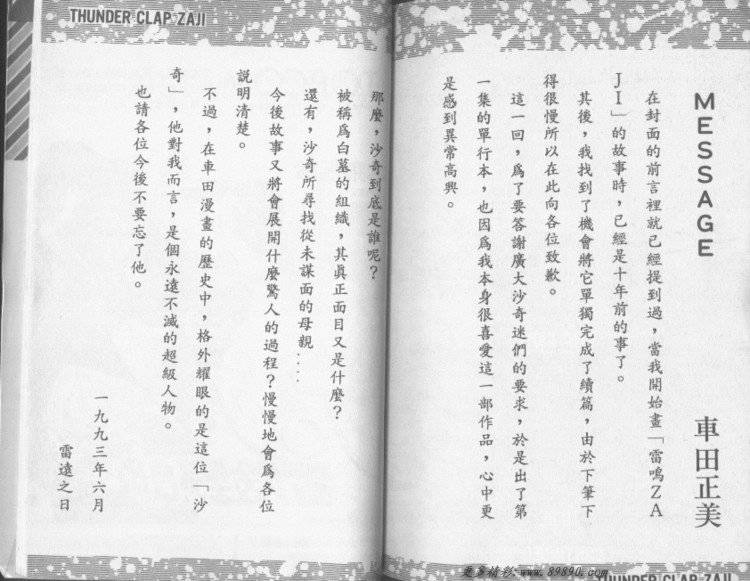 THUNDER CLAP ZAJI
MESSAGE
車田正美
在封面的前言裡就已經提到過，當我開始畫「雷鳴ZA
JI」的故事時，已經是十年前的事了。
其後，我找到了機會將它單獨完成了續篇，由於下筆下
得很慢所以在此向各位致歉。
這一回，爲了要答謝廣大沙奇迷們的要求，於是出了第
一集的單行本，也因爲我本身很喜愛這一部作品，心中更
是感到異常高興。
那麼，沙奇到底是誰呢？
被稱爲白墓的組織，其眞正面目又是什麼？
還有，沙奇所尋找從未謀面的母親‥‥
今後故事又將會展開什麼驚人的過程？慢慢地會爲各位
説明清楚。
不過，在車田漫畫的歷史中，格外耀眼的是這位「沙
奇」，他對我而言，是個永遠不滅的超級人物。
也請各位今後不要忘了他。
一九九三年六月
雷遠之日
www.89890.com
THUNDER CLAP ZAJI